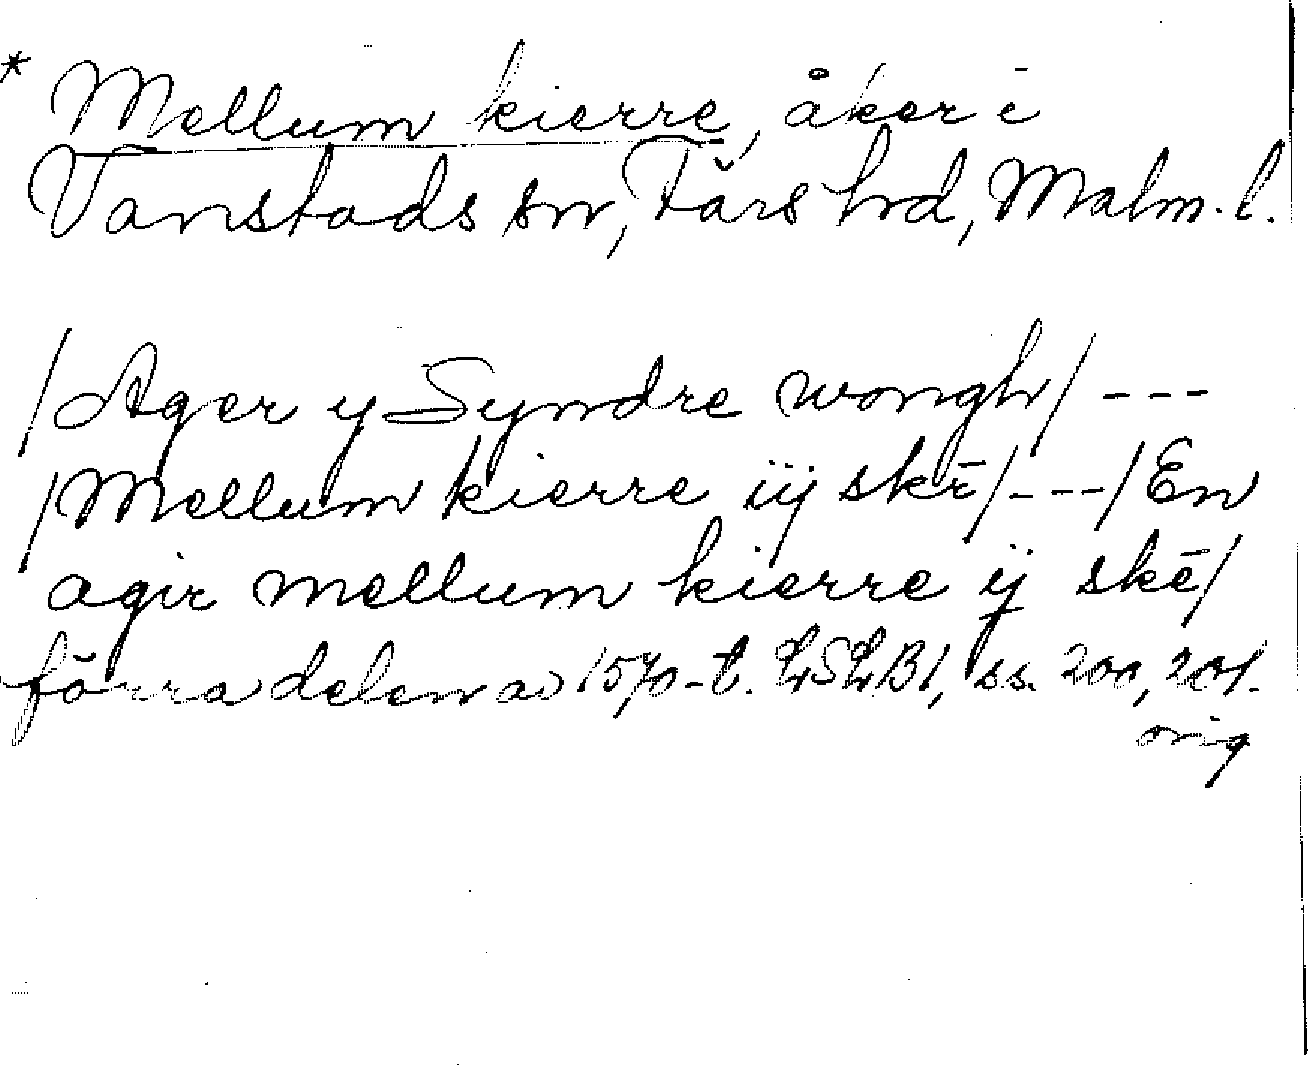 * Mellum kierre, åker i
Vanstads sn, Färs hrd, Malm. l.
/Ager y Syndre wongh/ ---
/Mellum kierre iij skē/---/En
agir mellum kierre ij skē/
förra delen av 1570-t. LSLB1, ss. 200, 201.
orig